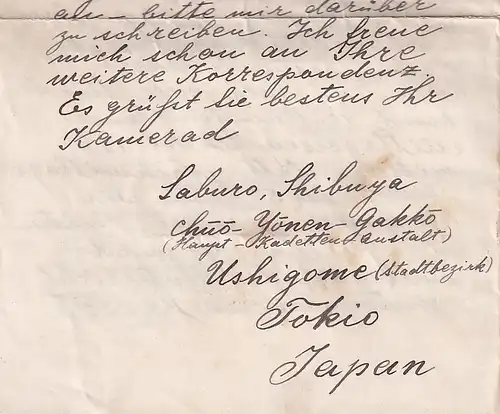 an - bitte mir darüber
zu schreiben. Ich freue
mich schon an Ihre
weitere Korrespondenz.
Es grüßt Sie bestens Ihr
Kamerad
Saburo, Shibuya
Chūō-Yōnen-Gakkō
(Haupt-Kadettenanstalt)
Ushigome (Stadtbezirk)
Tokio
Japan